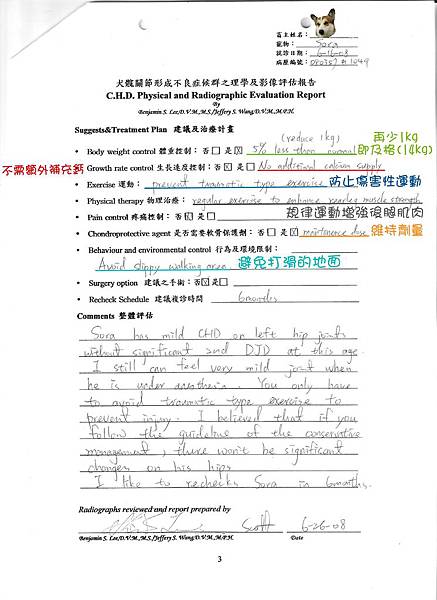 畜主姓名：
寵物： Sora
就診日期： 6-16-08
病歷編號： 080357 #1049
犬髖關節形成不良症候群之理學及影像評估報告
C.H.D. Physical and Radiographic Evaluation Report
By
Benjamin S. Lee,D.V.M.,M.S./Jeffery S. Wang,D.V.M.,M.P.H.
Suggests&Treatment Plan 建議及治療計畫
(reduce 1kg) 再少1kg
• Body weight control 體重控制：否 □ 是 ☒ 5% less than normal 即及格(14kg)
不需額外補充鈣 • Growth rate control 生長速度控制：否 ☒ 是 □ No additional calcium supply
• Exercise 運動： prevent traumatic type exercise 防止傷害性運動
• Physical therapy 物理治療： regular exercise to enhance rearleg muscle strength
• Pain control 疼痛控制：否 ☒ 是 □ 規律運動增強後腿肌肉
• Chondroprotective agent 是否需要軟骨保護劑：否 □ 是 ☒ maintenance dose 維持劑量
• Behaviour and environmental control 行為及環境限制：
Avoid slippy walking area 避免打滑的地面
• Surgery option 建議之手術：否 ☒ 是 □
• Recheck Schedule 建議複診時間 6months
Comments 整體評估
Sora has mild CHD on left hip joints
without significant and DJD at this age.
I still can feel very mild joint when
he is under anesthesia. You only have
to avoid traumatic type exercise to
prevent injury. I believed that if you
follow the guideline of the conservative
management, there won't be significant
changes on his hips
I like to rechecks Sora in 6months.
Radiographs reviewed and report prepared by
Scott 6-26-08
Benjamin S. Lee,D.V.M.,M.S./Jeffery S. Wang,D.V.M.,M.P.H. Date
3